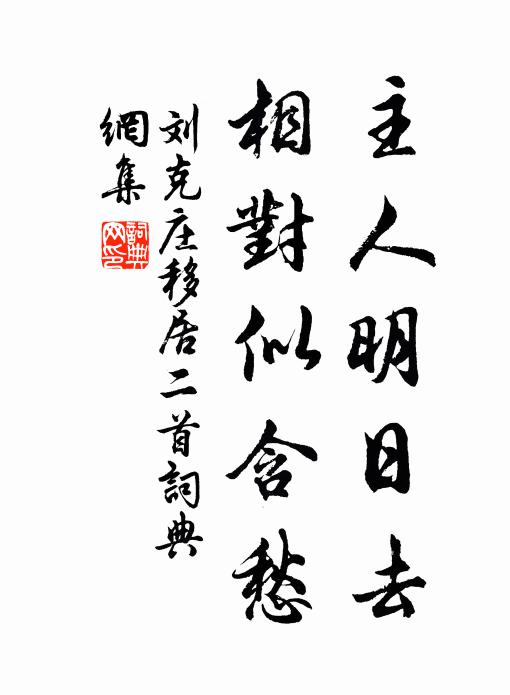 主人明日去
相對似含愁
刘克庄移居二首詞典
網集
詞典网印